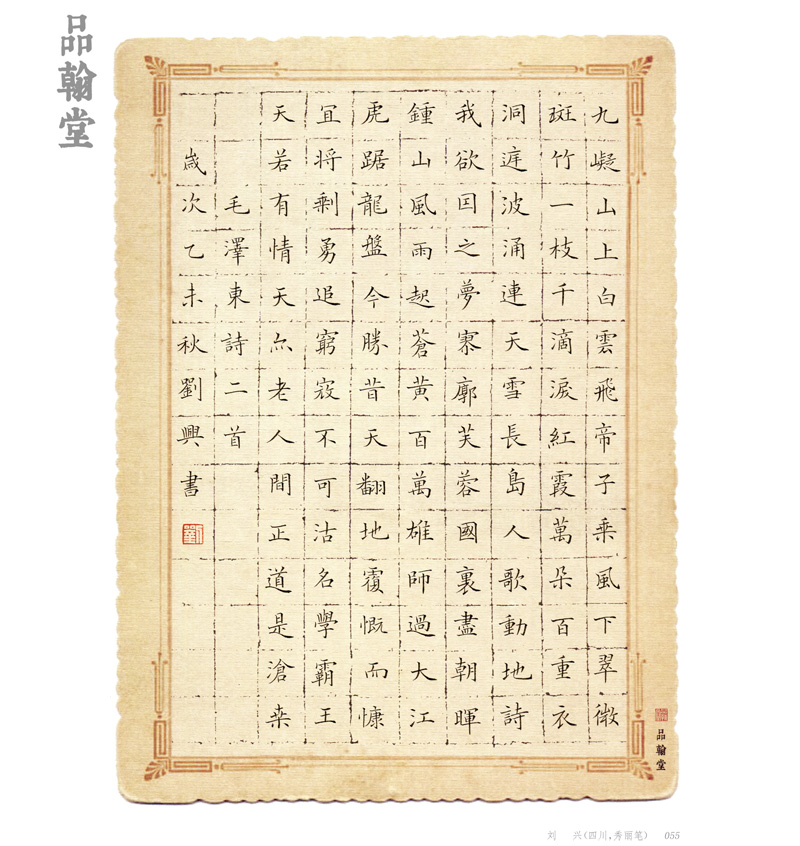 品翰堂
九嶷山上白雲飛帝子乘風下翠微
斑竹一枝千滴淚紅霞萬朵百重衣
洞庭波涌連天雪長島人歌動地詩
我欲因之夢寥廓芙蓉國裏盡朝暉
鍾山風雨起蒼黃百萬雄師過大江
虎踞龍盤今勝昔天翻地覆慨而慷
宜将剩勇追窮寇不可沽名學霸王
天若有情天亦老人間正道是滄桑
毛澤東詩二首
歲次乙未秋劉興書
品翰堂
刘 兴(四川,秀丽笔) 055